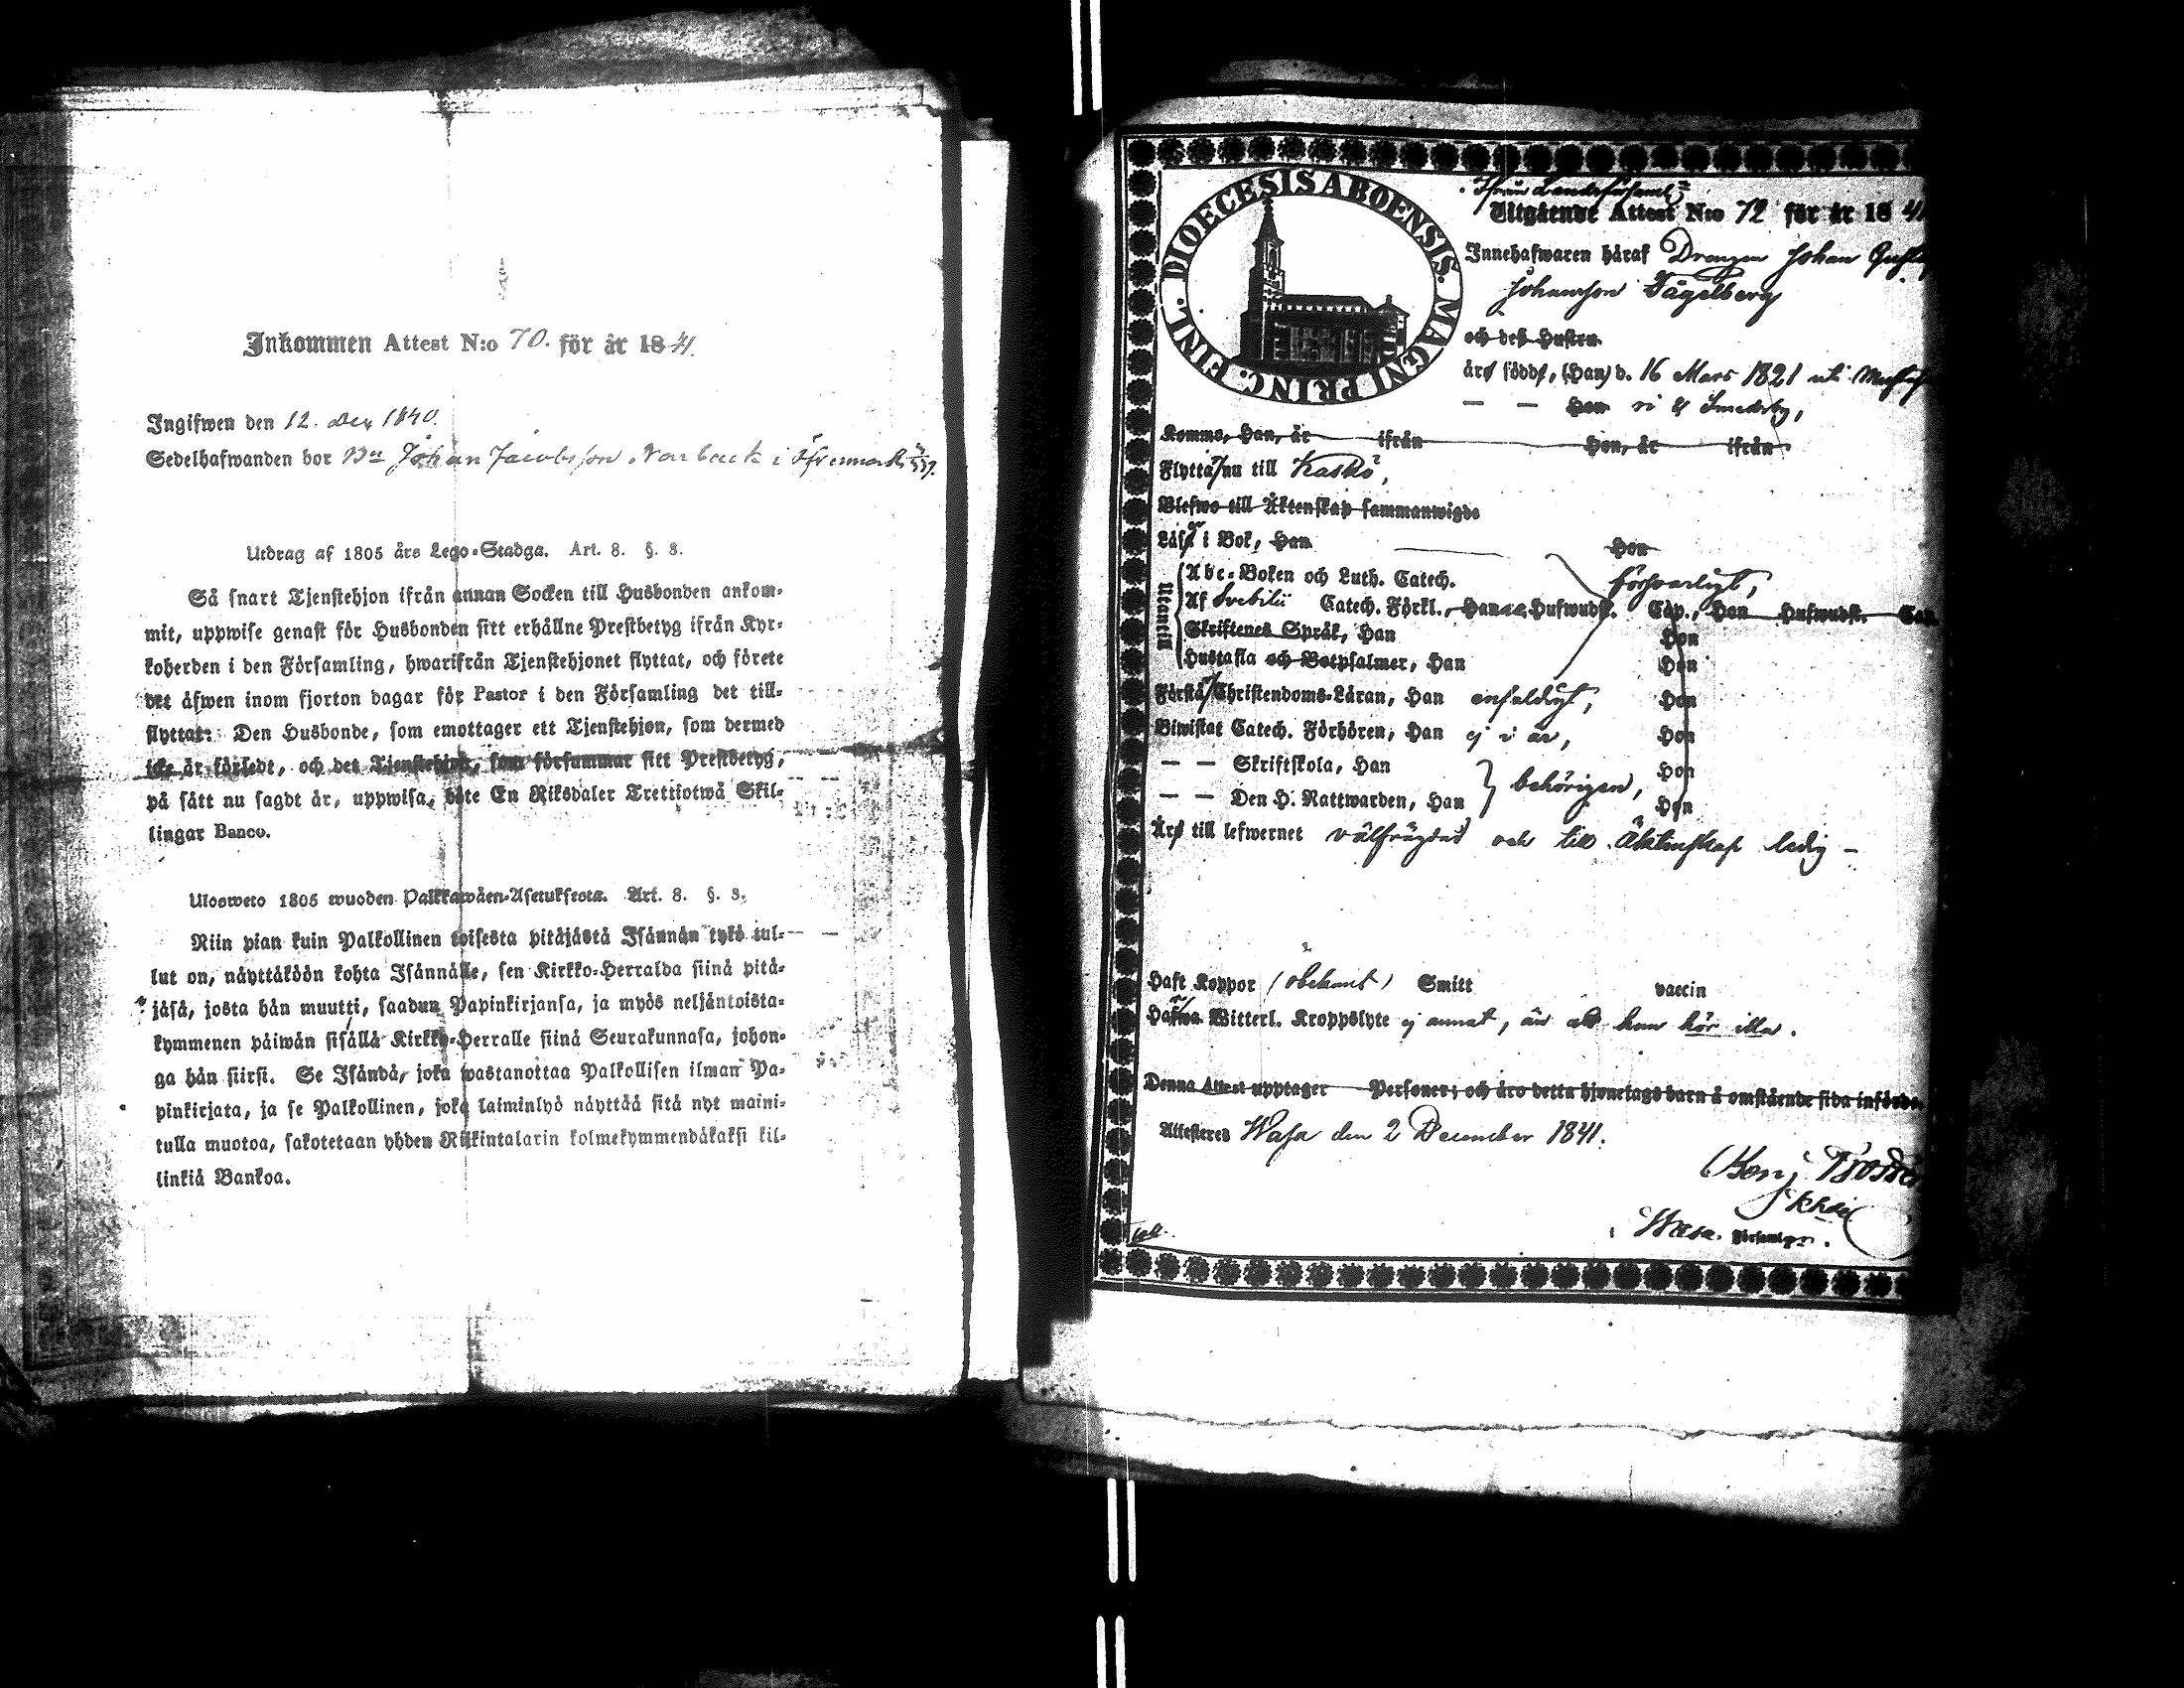 Inkommen Attest N:o 70. för år 1841.
Ingifwen den 12. Dec 1840.
Sedelhafwanden bor Johan Jacobsson Norrback i Öfvermark
Utdrag af 1805 års Lego-Stadga. Art. 8. §. 3.
Så snart Tjenstehjon ifrån annan Socken till Husbonden ankom-
mit, uppwise genast för Husbonden sitt erhållne Prestbetyg ifrån Kyr-
koherden i den Församling, hwarifrån Tjenstehjonet flyttat, och förete
det äfwen inom fjorton dagar för Pastor i den Församling det till-
flyttat: Den Husbonde, som emottager ett Tjenstehjon, som dermed
icke är försedt, och det Tjenstehjon, som försummar sitt Prestbetyg,
på sätt nu sagdt är, uppwisa, böte En Riksdaler Trettiotwå Skil-
lingar Banco.
Ulosweto 1805 wuoden Palkkawäen-Asetuksesta. Art. 8. §. 3.
Niin pian kuin Palkollinen toisesta pitäjästä Isännän tykö tul-
lut on, näyttäköön kohta Isännälle, sen Kirkko-Herralda siinä pitä-
jäsä, josta hän muutti, saadun Papinkirjansa, ja myös neljäntoista-
kymmenen päiwän sisällä Kirkko-Herralle siinä Seurakunnasa, johon-
ga hän siirsi. Se Isändä, joka wastanottaa Palkollisen ilman Pa-
pinkirjata, ja se Palkollinen, joka laiminlyö näyttää sitä nyt maini-
tulla muotoa, sakotetaan yhden Riikintalarin kolmekymmendäkaksi kil-
linkiä Bankoa.
DIOECESIS ABOENSIS. MAGNI PRINC. FINL.
ifrån Landsförsaml:
Utgående Attest N:o 72 för år 1841
Innehafwaren häraf Drengen Johan
Johansson Fågelberg
och deß Hustru
äro födde, (Han) d. 16 Mars 1821 uti
— — Hon Smedsby,
Kommo, Han, år ifrån Hon, år ifrån
Flyttar nu till Kaskö,
Blefwo till Äktenskap sammanwigde
Läser i Bok, Han Hon
Utantill
Abc-Boken och Luth. Catech. försvarligt,
Af Svebilii Catech. Förkl., Han Hufwudst. Cap., Han Hufwudst. Cap.
Skriftenes Språk, Han Hon
Hustafla och Botpsalmer, Han Hon
Förstår Christendoms-Läran, Han enfaldigt, Hon
Biwistat Catech. Förhören, Han ej i år, Hon
— — Skriftskola, Han Hon
behörigen,
— — Den H. Nattwarden, Han Hon
Äro till lefwernet välfrägdad och till Äktenskap ledig —
Haft Koppor (obekant) Smitt vaccin
Hafwa Witterl. Kroppslyte ej annat, än att han hör illa.
Denna Attest upptager Personer; och äro detta hjonelags barn å omstående sida införde.
Attesteres Wasa den 2 December 1841.
Benj
i Wasa. Församlgn.